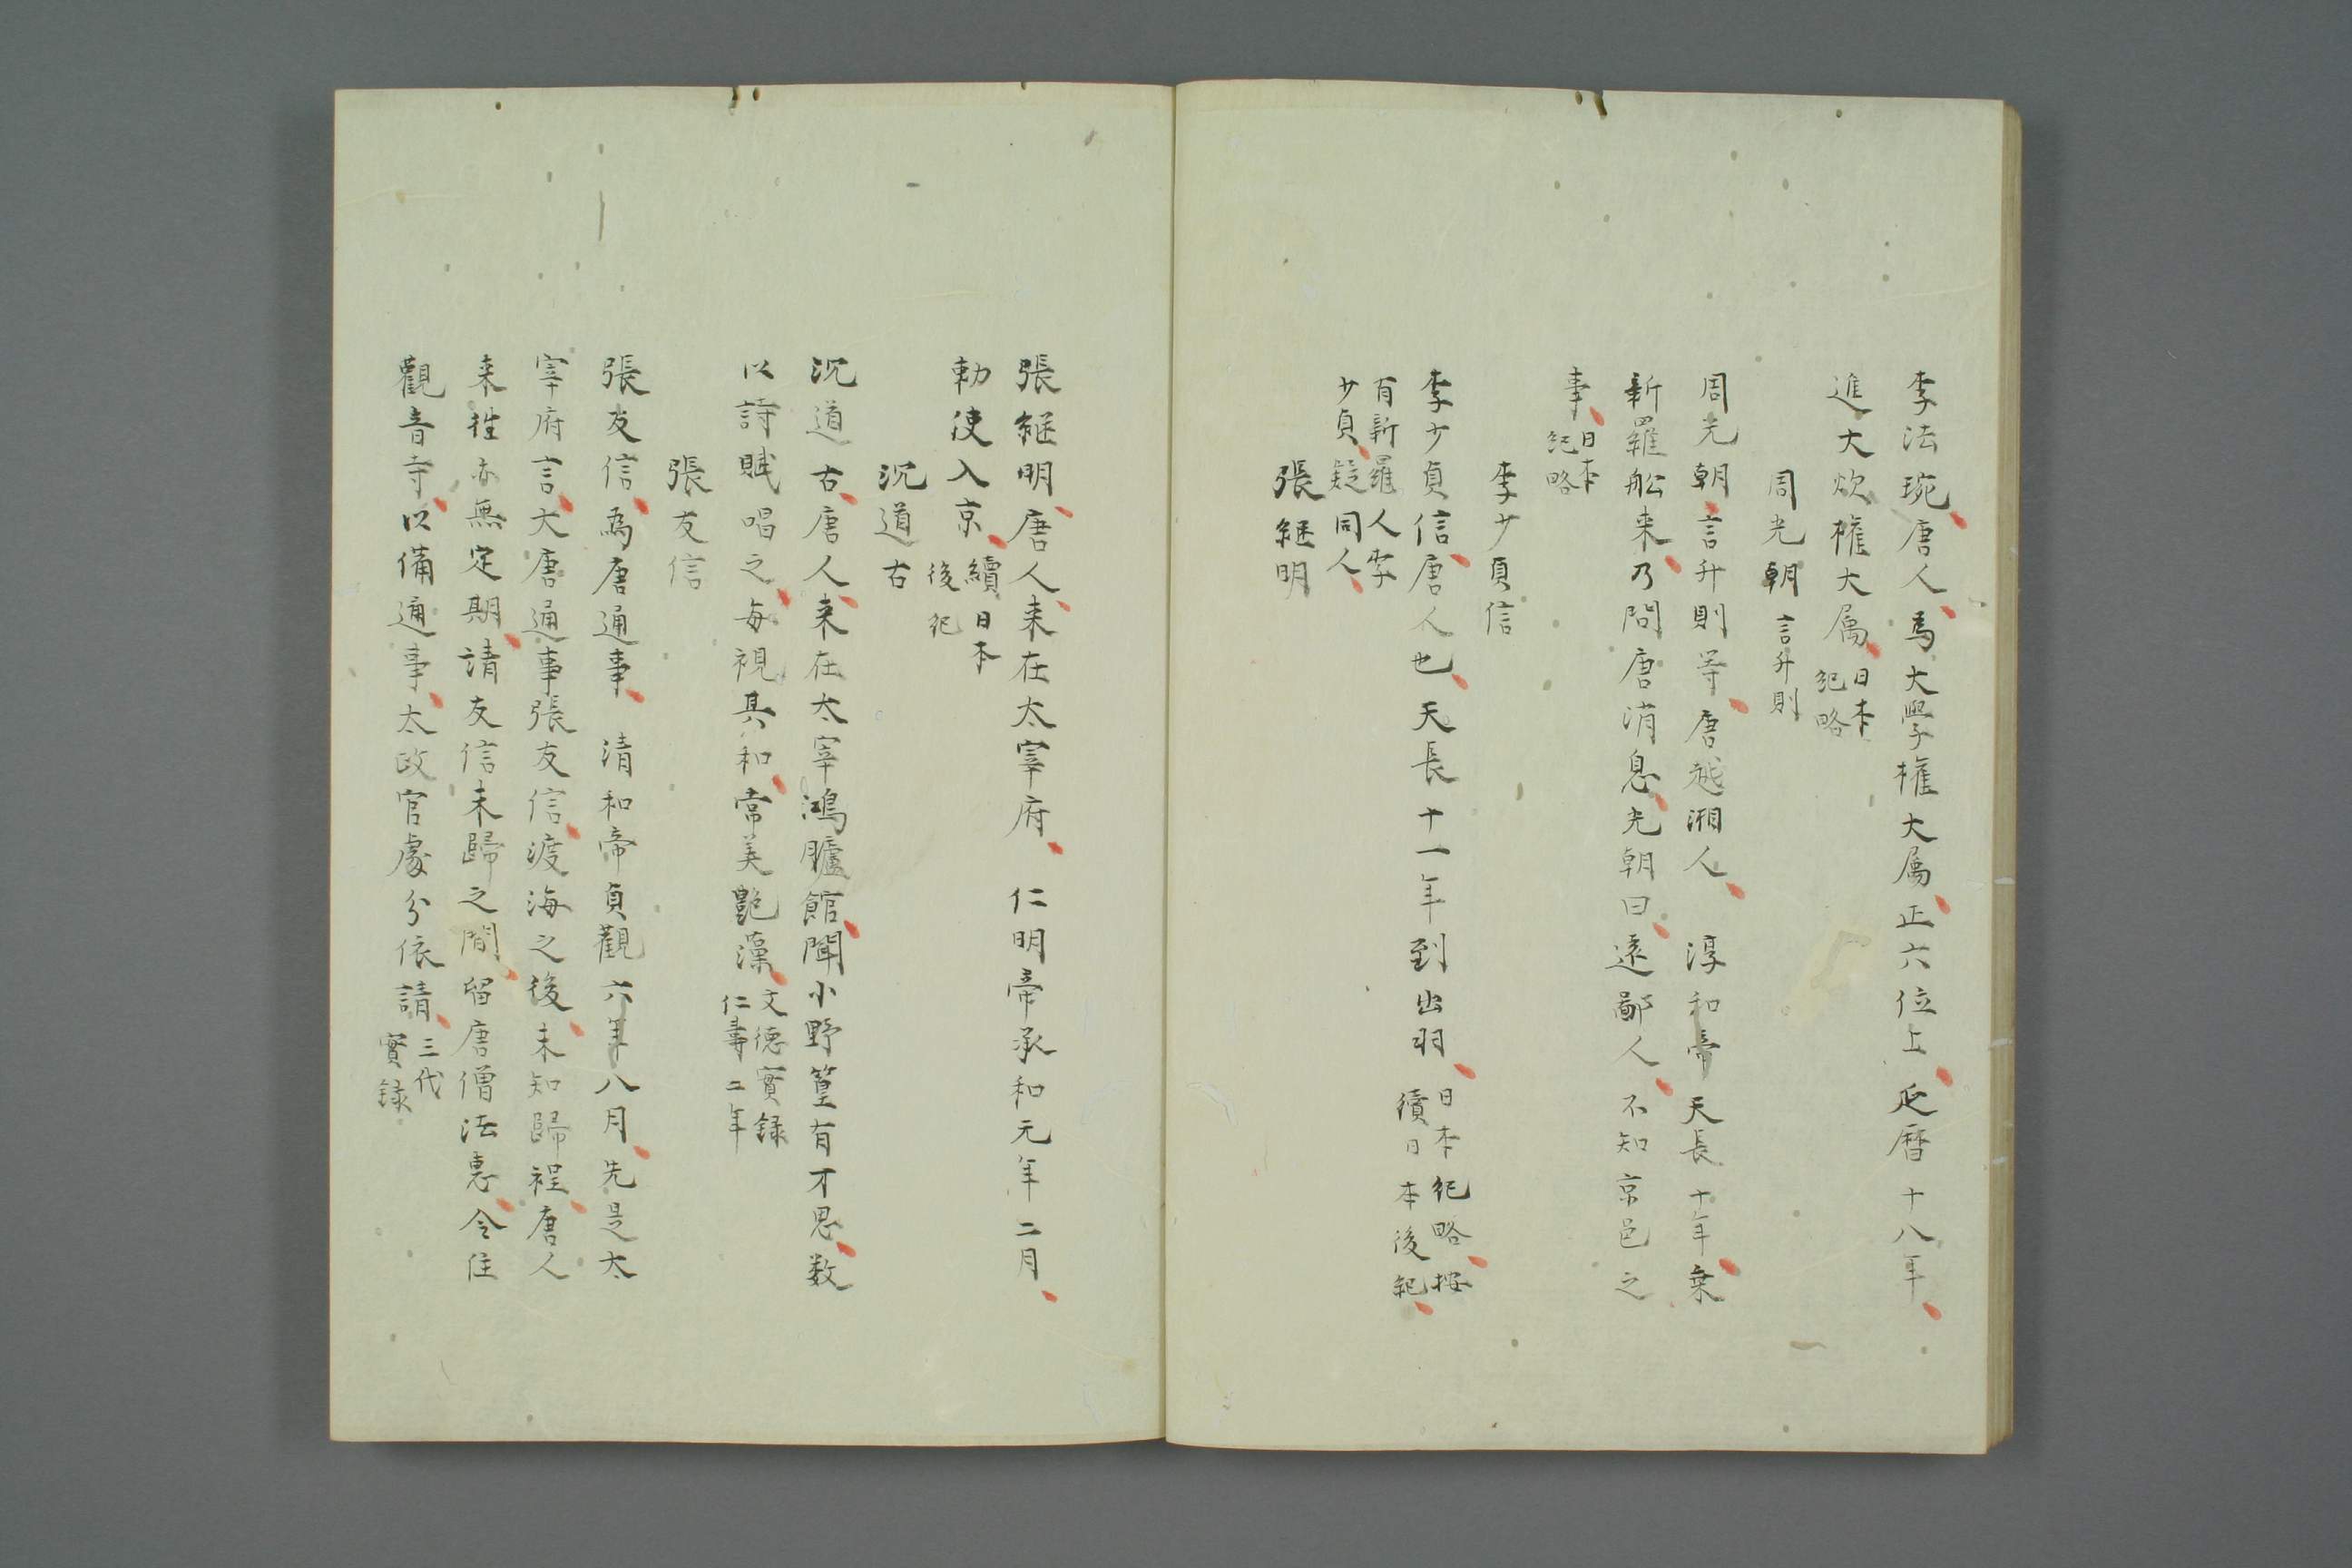 李法琬唐人為大學權大属正六位上延暦十八年
進大炊權大属日本紀略
周光朝言升則
周光朝言升則等唐越湘人 淳和帝天長十年乗
新羅舩来乃問唐消息光朝曰遠鄙人不知京邑之
事日本紀略
李少貞信
李少貞信唐人也天長十一年到出羽日本紀略按續日本後紀
有新羅人李少貞疑同人
張継明
張継明唐人来在太宰府 仁明帝承和元年二月
勅使入京續日本後紀
沉道古
沉道古唐人来在太宰鴻臚館聞小野篁有才思数
以詩賦唱之每視其和常美艶藻文徳實録仁壽二年
張友信
張友信為唐通事 清和帝貞觀六年八月先是太
宰府言大唐通事張友信渡海之後未知歸程唐人
来往亦無定期請友信未歸之間留唐僧法惠令住
觀音寺以備通事太政官處分依請三代實録